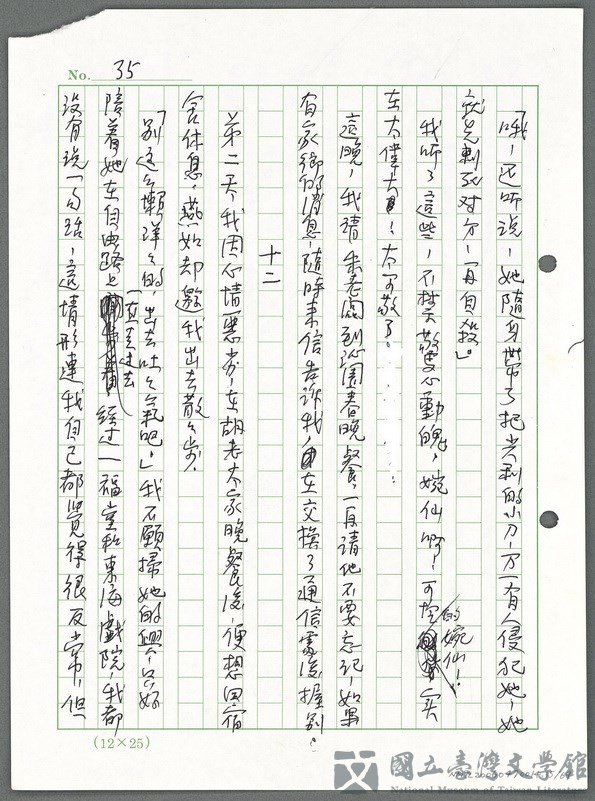 No. 35
「哦！還听说，她隨身带了把尖利的小刀，万一有人侵犯她，她
就先刺死对方，再自殺」。
我听了這些，不禁驚心動魄，婉仙啊！可
的婉仙！
在太偉大了！太可敬了。
這晚，我請朱老闆到沁園春晚餐，一再請他不要忘记，如果
有家鄉的消息，隨時来信告訴我，在交換了通信處後握别。
十二
第二天，我因心情惡劣，在胡老太家晚餐後，便想回宿
舍休息，燕如却邀我出去散々步。
「别这么懒洋々的，出去吐々氣吧。」我不願掃她的興，只好
陪着她在自由路上
一直走去
經过一福堂和東海戲院，我都
没有说一句话，這情形連我自己都覚得很反常，但
(12×25)
國立臺灣文學館
National Museum of Taiwan Literature